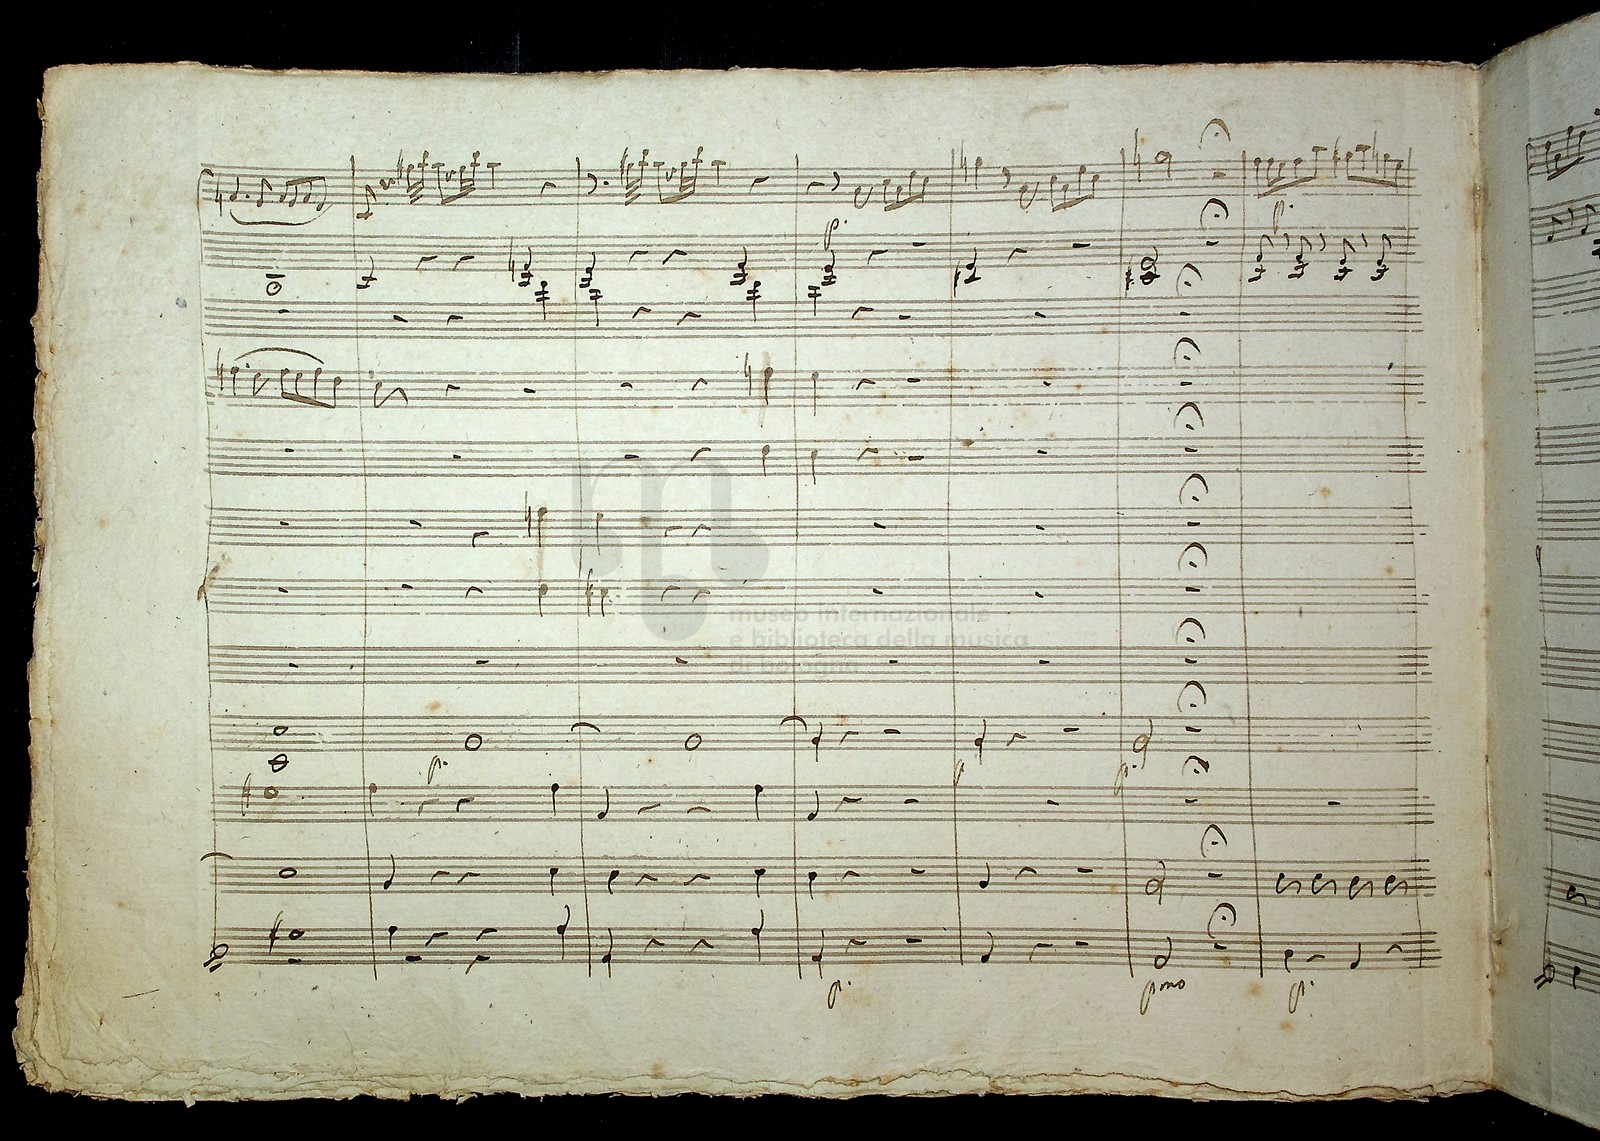 p.
p.
museo internazionale
e biblioteca della musica
di bologna
p.
p.
p.
p.
pmo
p.